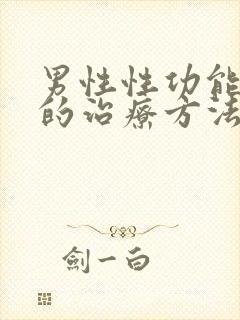 男性性功能
的治療方法
劍一白